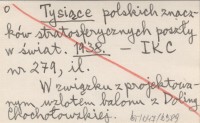 o Tysiące polskich znacz-
ków stratosferycznych poszły
w świat. 1938. - IKC
nr 279, il.
W związku z projektowa-
nym wzlotem balonu z Doliny
Chochołowskiej.